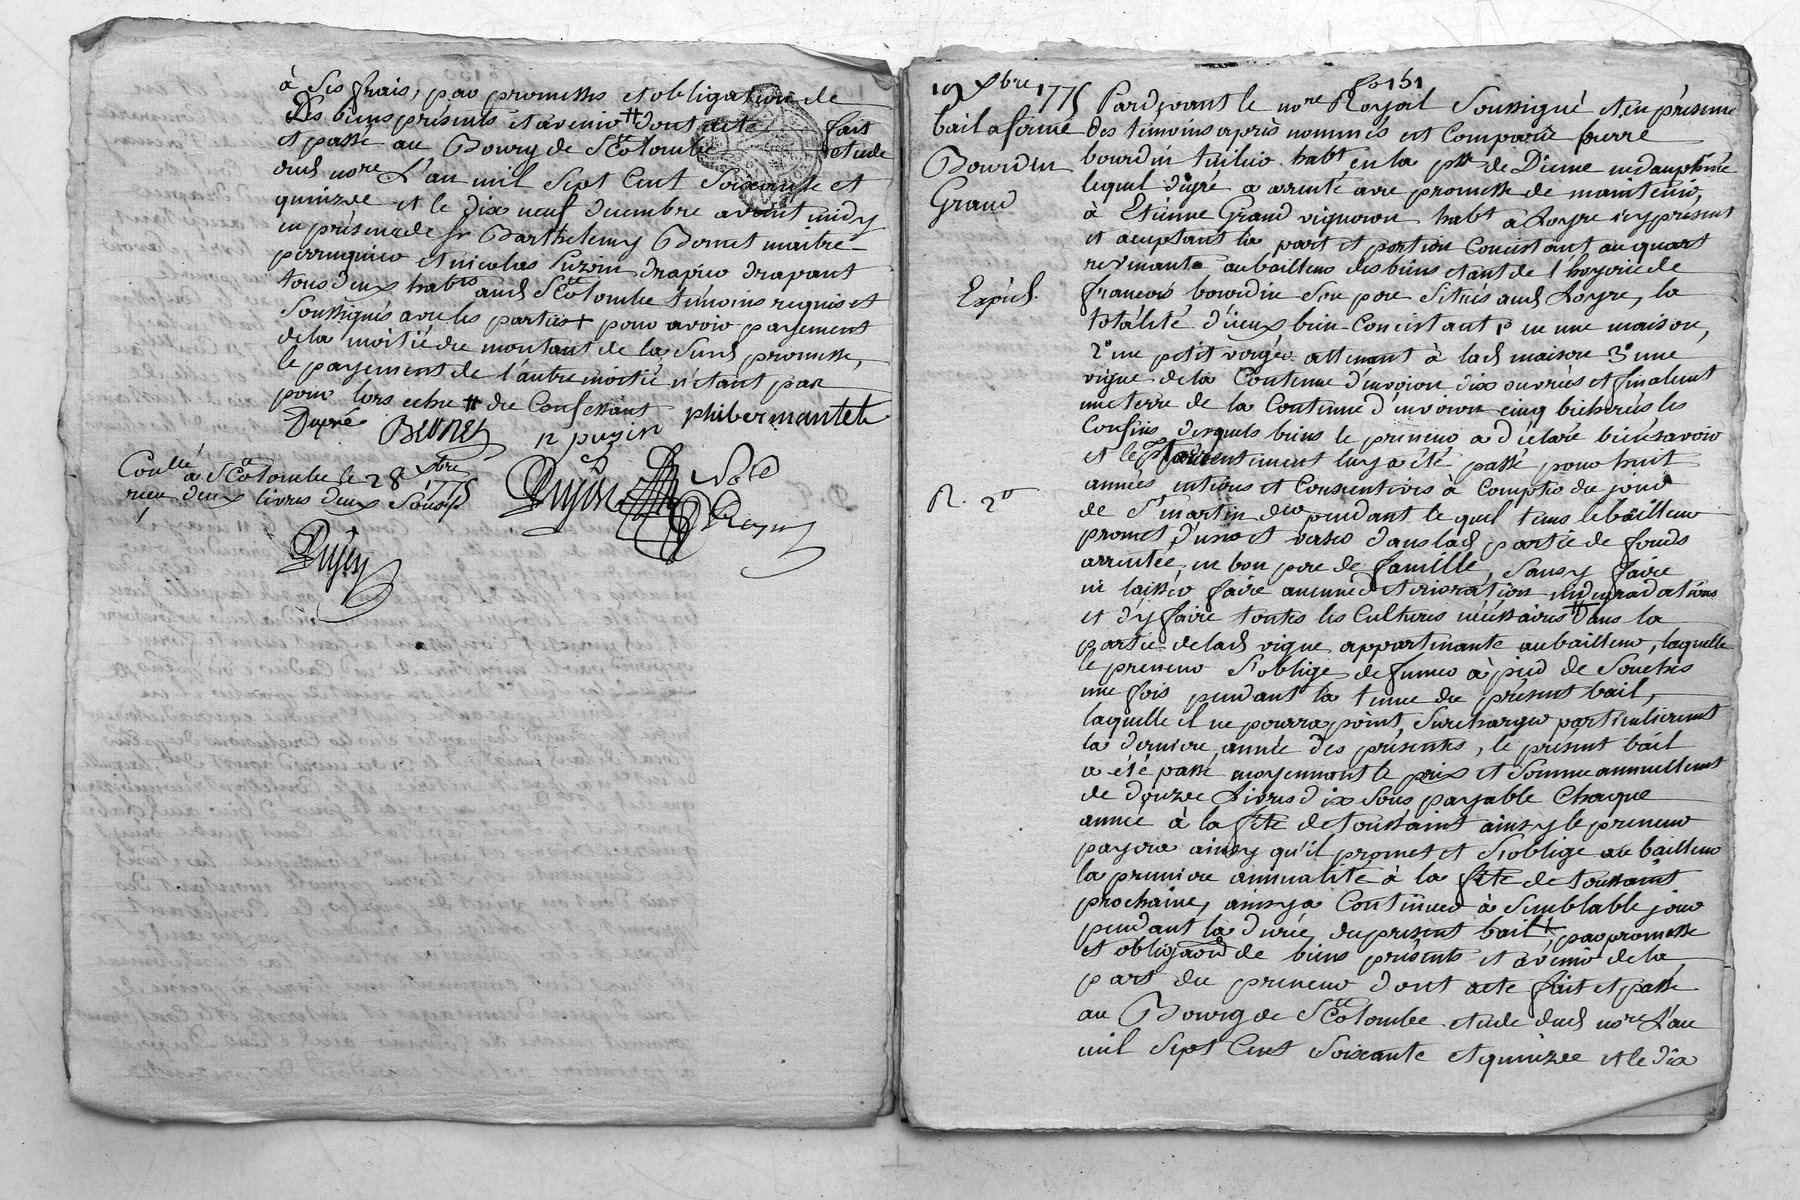 à ses frais, par promesses et obligation de
Des biens présents et avenir # dont acte fait
et passé au Bourg de Ste Colombe etude
dud. nore L'an mil Sept Cent Soixante et
quinze et le dix neuf decembre avant midy
en présence de Sr Barthelemy Bonnet maitre
perruquier et nicolas Puzin drapier drapant
tous deux habts aud. Ste Colombe témoins requis et
Soussignés avec les parties + pour avoir payement
de la moitié du montant de la Susd. promesse,
le payement de l'autre moitié n'etant pas
pour lors echu # du Confessant
Dupré Bonnet n puzin phiber mantet
Coullé
à Ste Colombe le 28 xbre 1775
reçu deux livres deux Sous
Dujin
19 Xbre 1775
bail a ferme
Bourdin
Grand
Expéd.
R. 2o
fo 151
Pardevant le nore Royal Soussigné et en présence
des témoins après nommés est Comparu pierre
bourdin tuilier habt en la psse de Dieme en dauphiné
lequel degré a arrenté avec promesse de maintenir,
à Etienne Grand vigneron habt a Loyre icy présent
et acceptant la part et portion Concistant au quart
revenante au bailleur des biens etant de l'hoyerie de
francois bourdin Son pere Situés aud. Loyre, la
totalité d'iceux bien Concistant 1o en une maison,
2o un petit verger attenant à lad. maison 3o une
vigne de la Contenue d'environ dix ouvrées et finalement
une terre de la Contenue d'environ cinq bicherées les
Confins desquels biens le preneur a déclaré bien savoir
et le présent arrentement luy a été passé pour huit
années entieres et Consecutives à Compter du jour
de St martin der pendant lequel tems le bailleur
promet d'user et verser dans lad. partie de fonds
arrentée, en bon pere de famille, Sans y faire
ni laisser faire aucunne deterioration ni degradations
et d'y faire toutes les Cultures nécéssaires # Dans la
partie de lad. vigne appartenante au bailleur, laquelle
le preneur S'oblige de fumer à pied de Souches
une fois pendant la tenue du présent bail,
laquelle il ne pourra point, Surcharger particulierement
la derniere année des présentes, le présent bail
a été passé moyennant le prix et Somme annuellement
de douze Livres dix Sous payable Chaque
année à la fête de toussaint ainsy le preneur
payera ainsy qu'il promet et S'oblige au bailleur
la premiere annualité à la fête de toussaint
prochaine, ainsy a Continuer à Semblable jour
pendant la durée du present bail +, par promesse
et obligaõn de biens présents et avenir de la
part du preneur dont acte fait et passé
au Bourg de Ste Colombe etude dud. nore L'an
mil Sept Cent Soixante et quinze et le dix